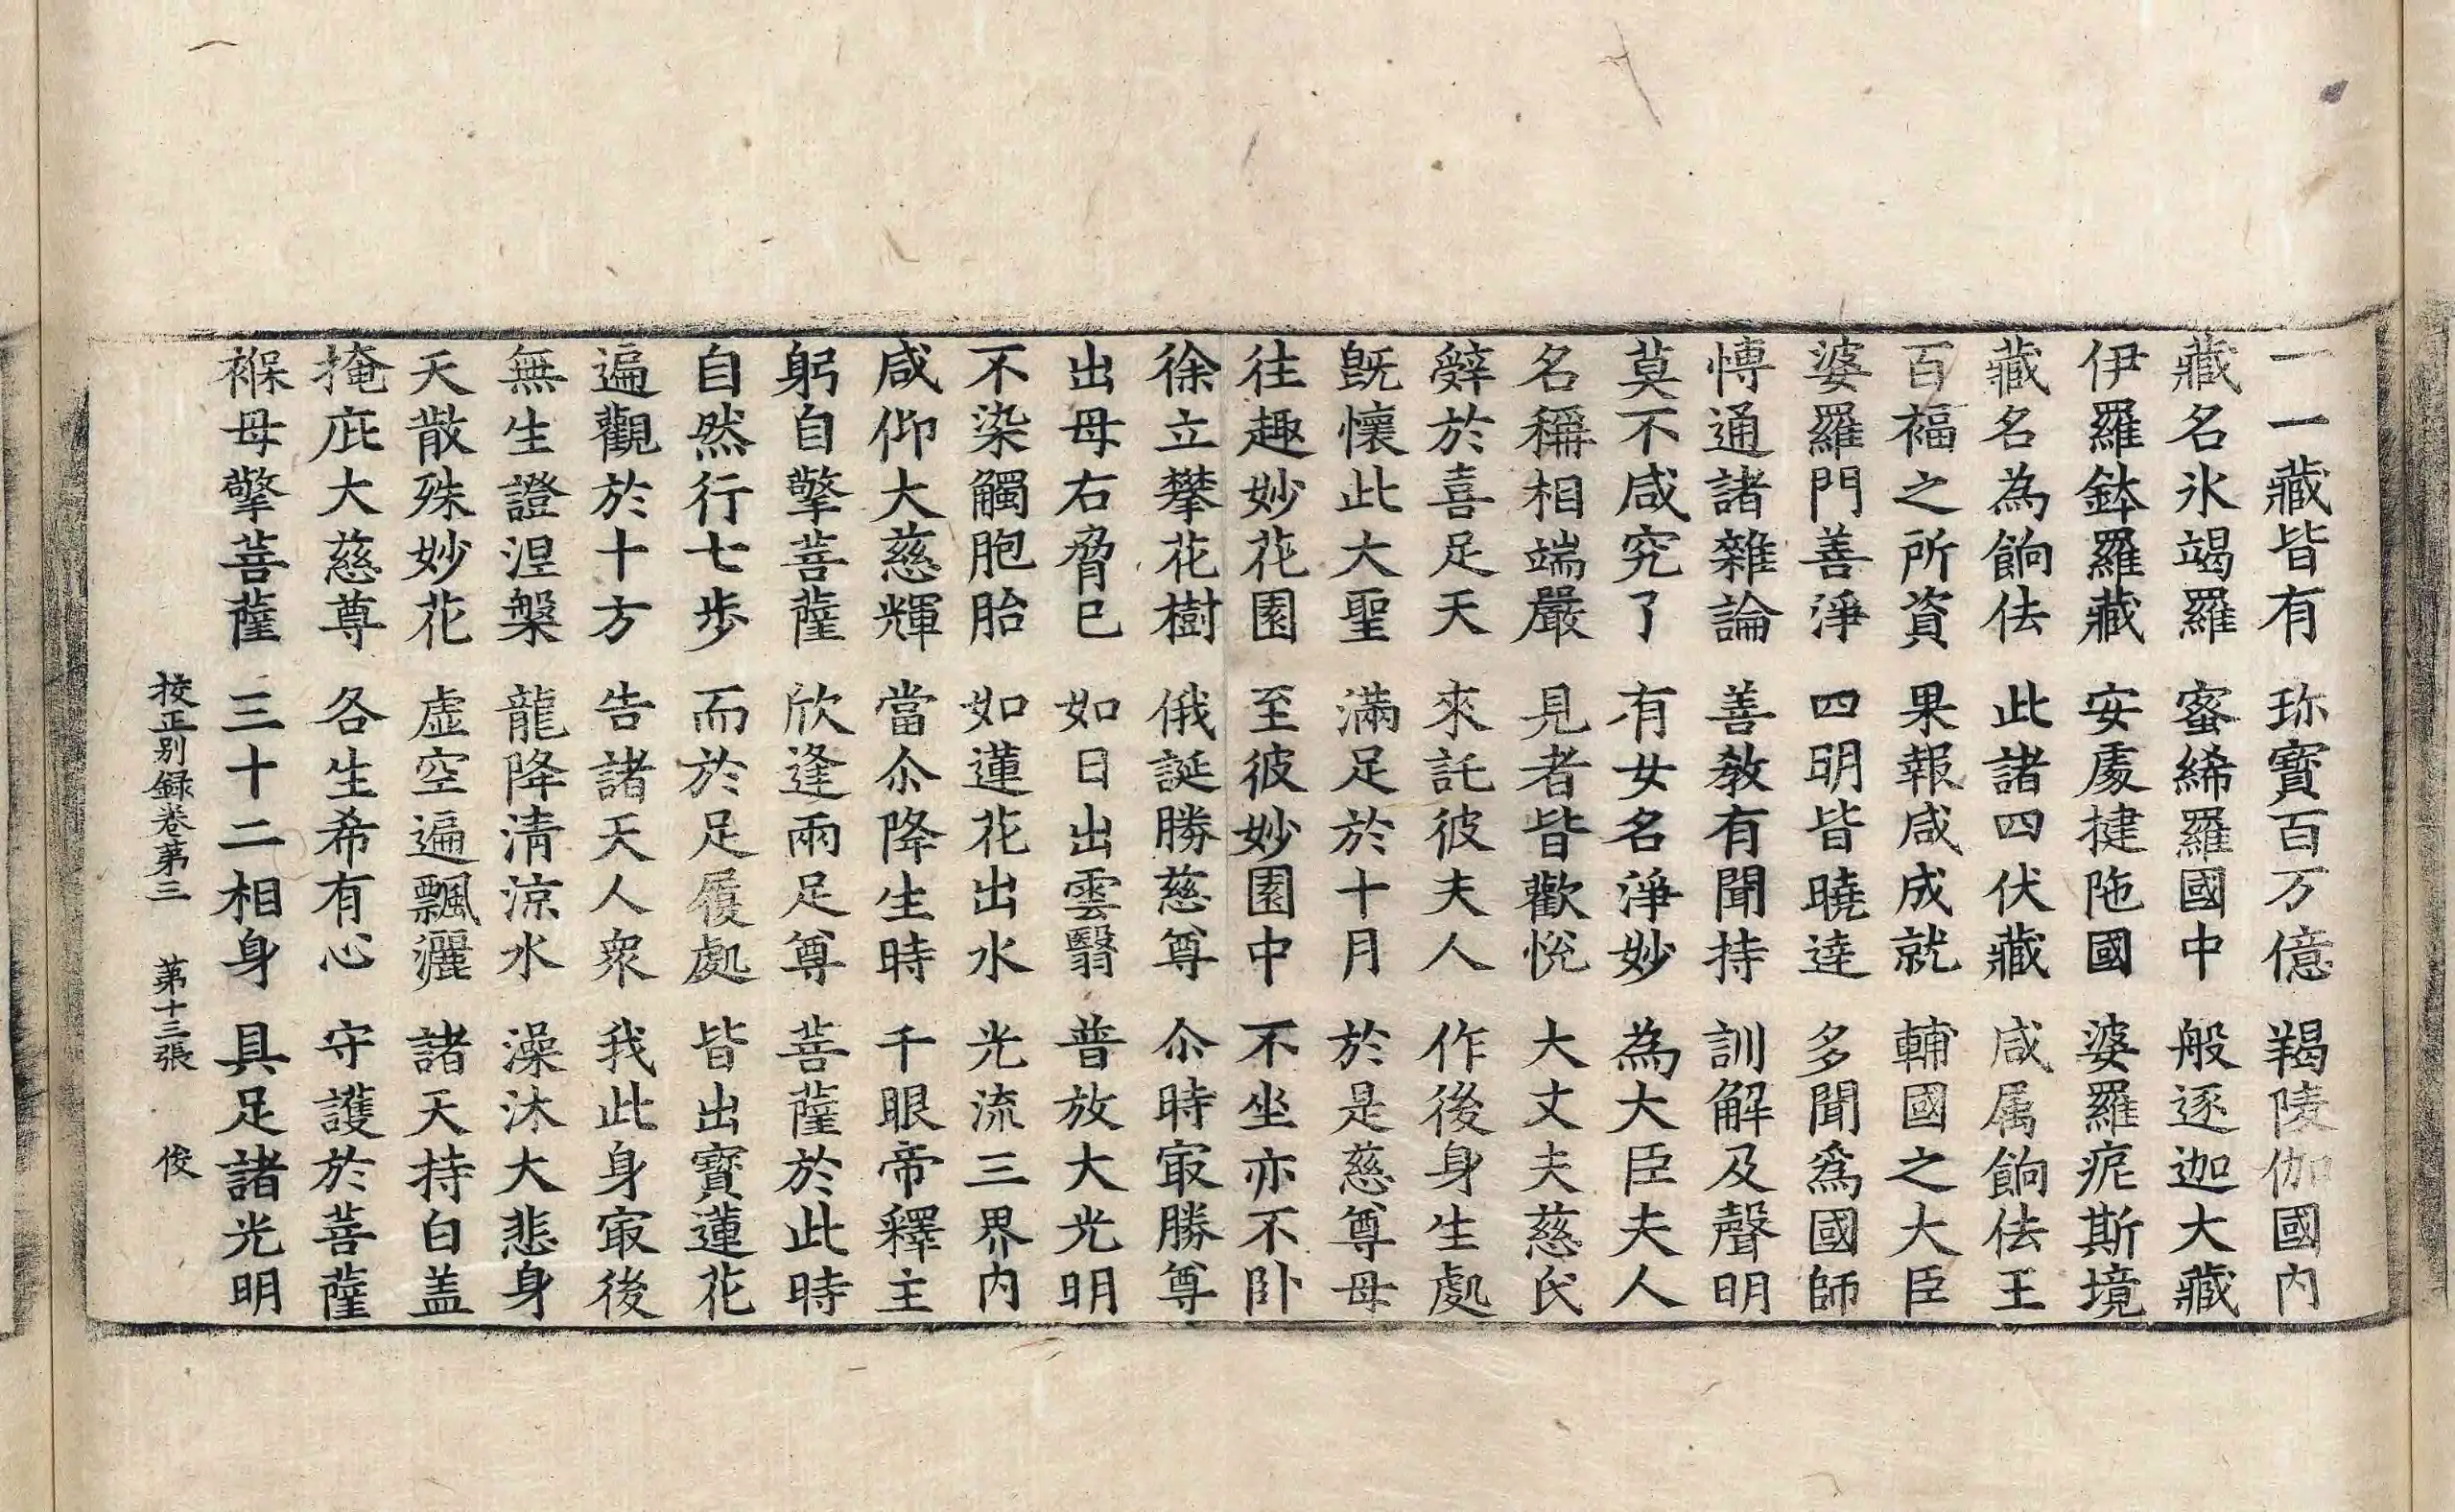 一一藏皆有　珎寶百万億　羯陵伽國內
藏名氷竭羅　蜜絺羅國中　般逐迦大藏
伊羅鉢羅藏　安處揵陁國　婆羅痆斯境
藏名為餉佉　此諸四伏藏　咸属餉佉王
百福之所資　果報咸成就　輔國之大臣
婆羅門善淨　四明皆曉達　多聞爲國師
博通諸雜論　善教有聞持　訓解及聲明
莫不咸究了　有女名淨妙　為大臣夫人
名稱相端嚴　見者皆歡悅　大丈夫慈氏
辤於喜足天　來託彼夫人　作後身生處
既懷此大聖　滿足於十月　於是慈尊母
往趣妙花園　至彼妙園中　不坐亦不卧
徐立攀花樹　俄誕勝慈尊　尒時㝡勝尊
出母右脅已　如日出雲翳　普放大光明
不染觸胞胎　如蓮花出水　光流三界內
咸仰大慈輝　當尒降生時　千眼帝釋主
躬自擎菩薩　欣逢兩足尊　菩薩於此時
自然行七步　而於足履處　皆出寶蓮花
遍觀於十方　告諸天人衆　我此身㝡後
無生證涅槃　龍降清涼水　澡沐大悲身
天散殊妙花　虛空遍飄灑　諸天持白盖
掩庇大慈尊　各生希有心　守護於菩薩
褓母擎菩薩　三十二相身　具足諸光明
挍正别録卷第三　第十三張　俊